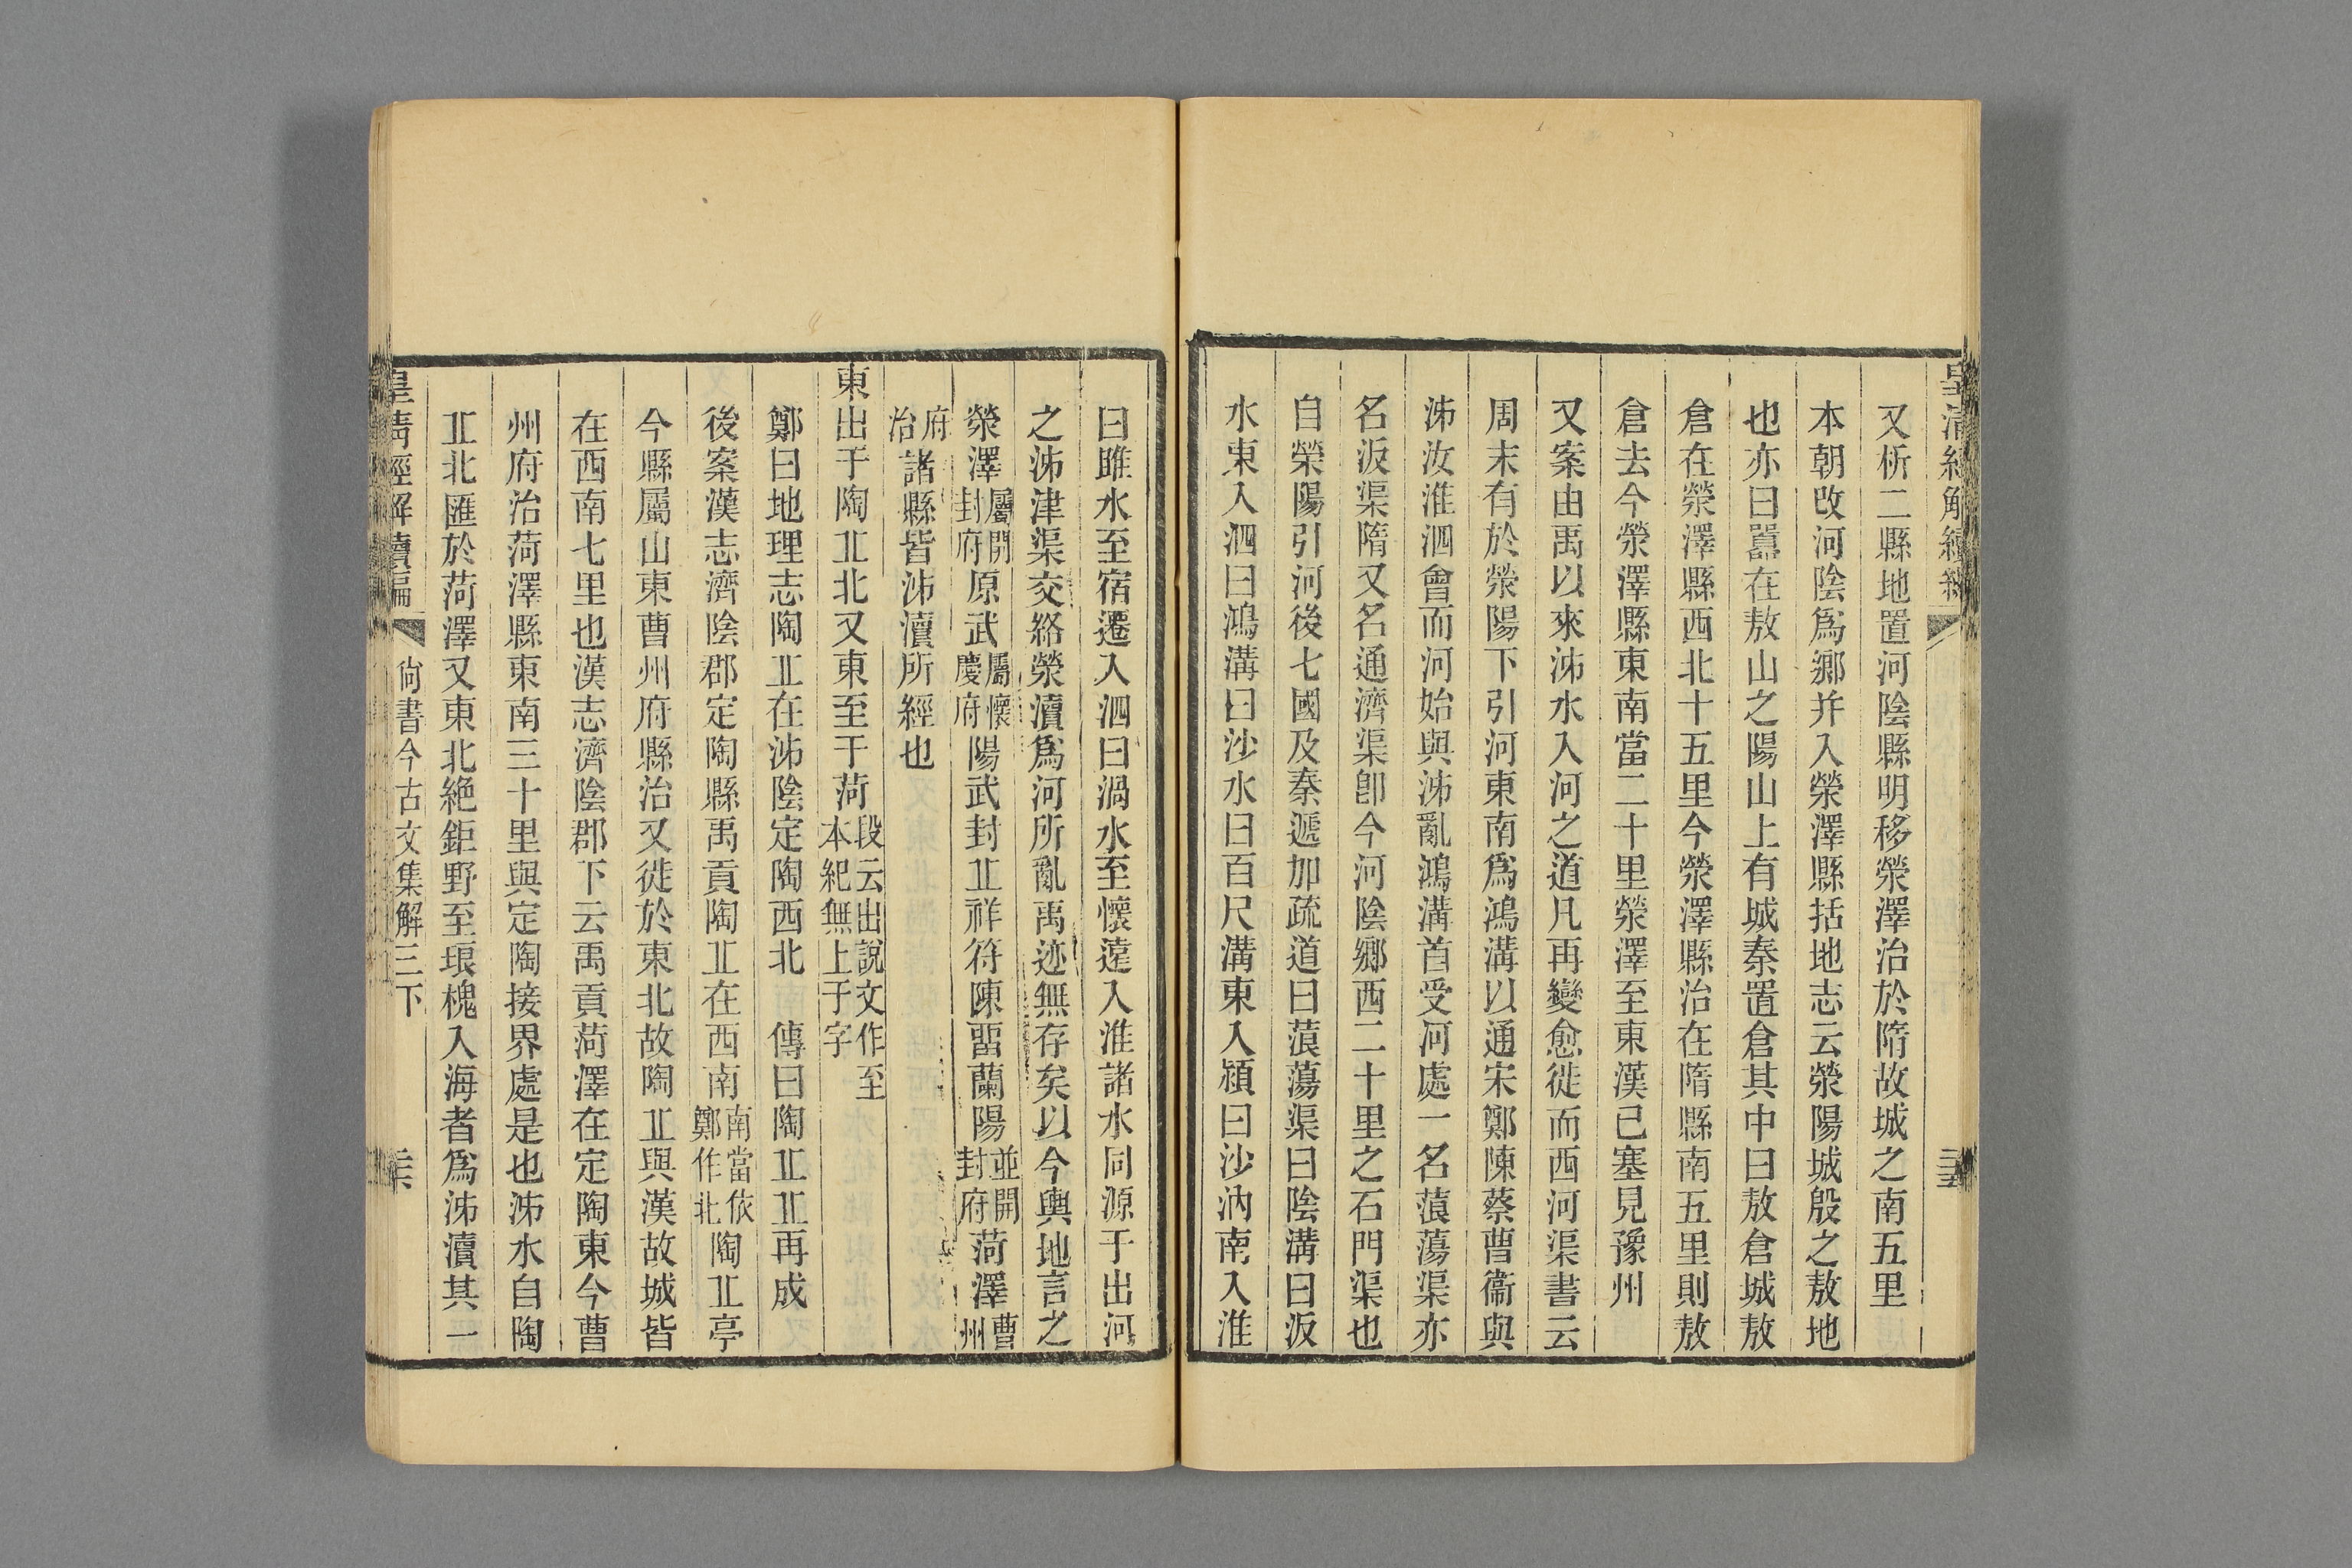 又析二縣地置河陰縣明移滎澤治於隋故城之南五里
本朝改河陰爲鄉并入滎澤縣括地志云滎陽城殷之敖地
也亦曰囂在敖山之陽山上有城秦置倉其中曰敖倉城敖
倉在滎澤縣西北十五里今滎澤縣治在隋縣南五里則敖
倉去今滎澤縣東南當二十里滎澤至東漢已塞見豫州
又案由禹以來泲水入河之道凡再變愈徙而西河渠書云
周末有於滎陽下引河東南爲鴻溝以通宋鄭陳蔡曹衞與
泲汝淮泗會而河始與泲亂鴻溝首受河處一名蒗蕩渠亦
名汳渠隋又名通濟渠卽今河陰鄉西二十里之石門渠也
自滎陽引河後七國及秦遞加疏道曰蒗蕩渠曰陰溝曰汳
水東入泗曰鴻溝曰沙水曰百尺溝東入潁曰沙汭南入淮
曰睢水至宿遷入泗曰渦水至懷遠入淮諸水同源于出河
之泲津渠交絡滎瀆爲河所亂禹迹無存矣以今輿地言之
滎澤屬開封府原武屬懷慶府陽武封丠祥符陳畱蘭陽並開封府菏澤曹州
府治諸縣皆泲瀆所經也
東出于陶丠北又東至于菏段云出說文作至本紀無上于字
鄭曰地理志陶丠在泲陰定陶西北 傳曰陶丠丠再成
後案漢志濟陰郡定陶縣禹貢陶丠在西南南當依鄭作北陶丠亭
今縣屬山東曹州府縣治又徙於東北故陶丠與漢故城皆
在西南七里也漢志濟陰郡下云禹貢菏澤在定陶東今曹
州府治菏澤縣東南三十里與定陶接界處是也泲水自陶
丠北匯於菏澤又東北絶鉅野至琅槐入海者爲泲瀆其一
皇清經解續編 尙書今古文集解三下